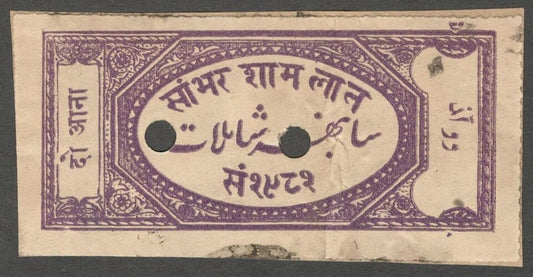 सांभर शामलात
سانبھر شاملات
सं१९८१
दो आना
دو آنہ